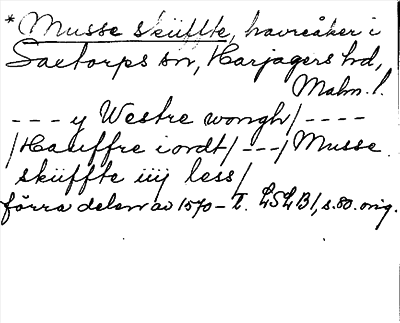 *Musse sküffte, havreåker i
Saetorps sn, Harjagers hd,
Malm. l.
--- y Westre wongh/ ----
/Hauffre iordt/ ---/ Musse
sküffte iiij less/
förra delen av 1570-t. LSLB1, s. 80. orig.